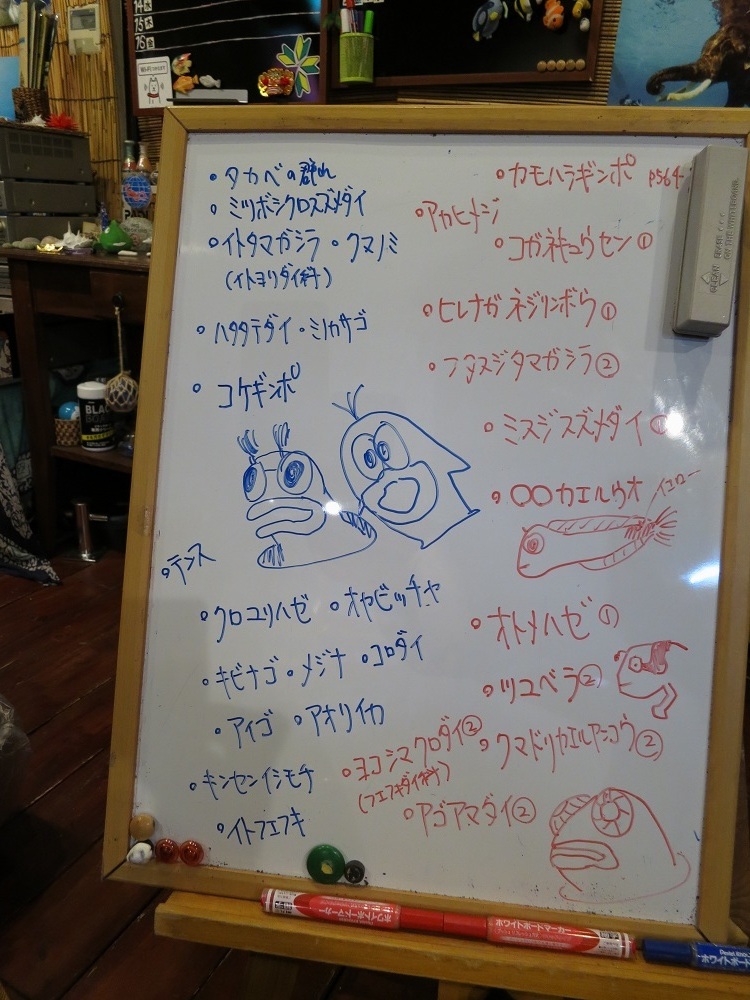 14木
15木
16金
・タカベの群れ
・ミツボシクロスズメダイ
・イトタマガシラ・クマノミ
(イトヨリダイ科)
・ハタタテダイ・ミノカサゴ
・コケギンポ
・テンス
・クロユリハゼ ・オヤビッチャ
・キビナゴ・メジナ ・コロダイ
・アイゴ ・アオリイカ
・キンセンイシモチ
・イトフエフキ
・カモハラギンポ P564
・アカヒメジ
・コガネキュウセン①
・ヒレナガネジリンボウ①
・フタスジタマガシラ②
・ミスジスズメダイ①
・〇〇カエルウオ
イエロー
・オトメハゼ①
・ツユベラ②
・ヨコシマクロダイ②
(フエフキダイ科)
・クマドリカエルアンコウ②
・アゴアマダイ②
BLACK
ホワイトボードマーカー
ホワイトボードマーカー